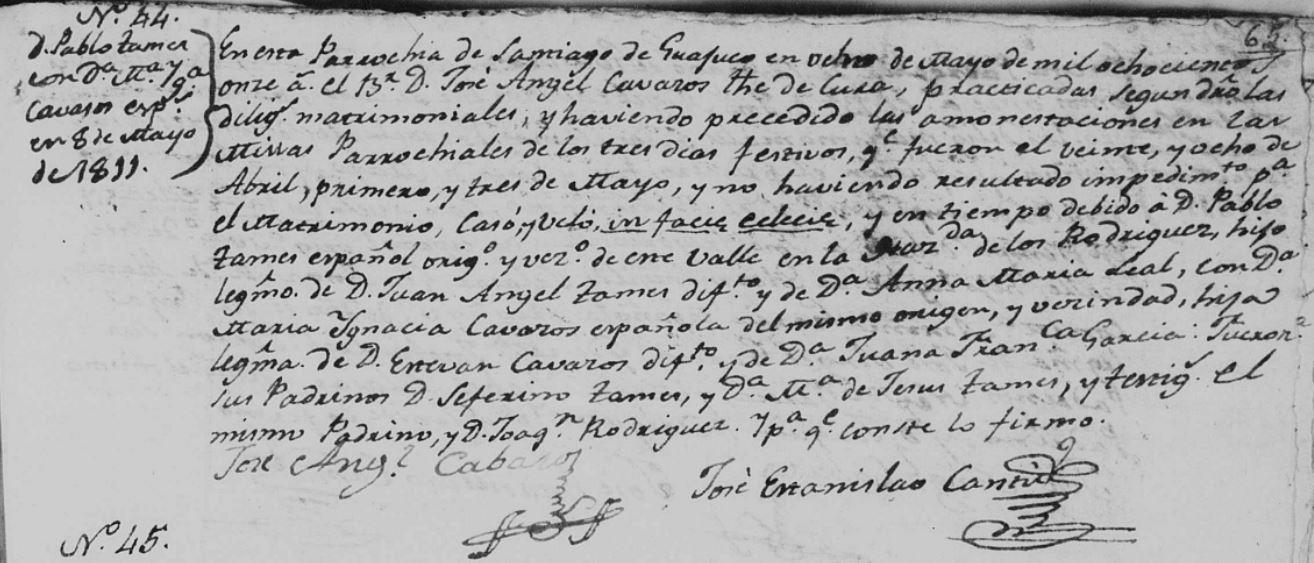 N.º 44.
D. Pablo Tames
con D.ª M.ª Yg.ª
Cavasos esp.s
en 8 de Mayo
de 1811.
65.
En esta Parrochia de Santiago de Guajuco en ocho de Mayo de mil ochocientos
onze a.s el B.r D. José Angel Cavazos The de Cura, practicadas segun dro las
dilig.s matrimoniales, y haviendo precedido las amonestaciones en las
Missas Parrochiales de los tres dias festivos, q.e fueron el veinte, y ocho de
Abril, primero, y tres de Mayo, y no haviendo resultado impedim.to p.a
el Matrimonio, Casó, y veló, in facie eclecie, y en tiempo debido á D. Pablo
Tames español orig.o y vez.o de este Valle en la Haz.da de los Rodriguez, hijo
legmo. de D. Juan Angel Tames dif.to y de D.ª Anna Maria Leal, con D.ª
Maria Ygnacia Cavazos española del mismo origen, y vezindad, hija
legma. de D. Estevan Cavazos dif.to y de D.ª Juana Fran.ca Garcia: Fueron
sus Padrinos D. Seferino Tames, y D.ª M.ª de Jesus Tames, y testig.s el
mismo Padrino, y D. Joaq.n Rodriguez. Y p.a q.e conste lo firmo.
José Ang.l Cabazos
José Estanislao Cantú
N.º 45.